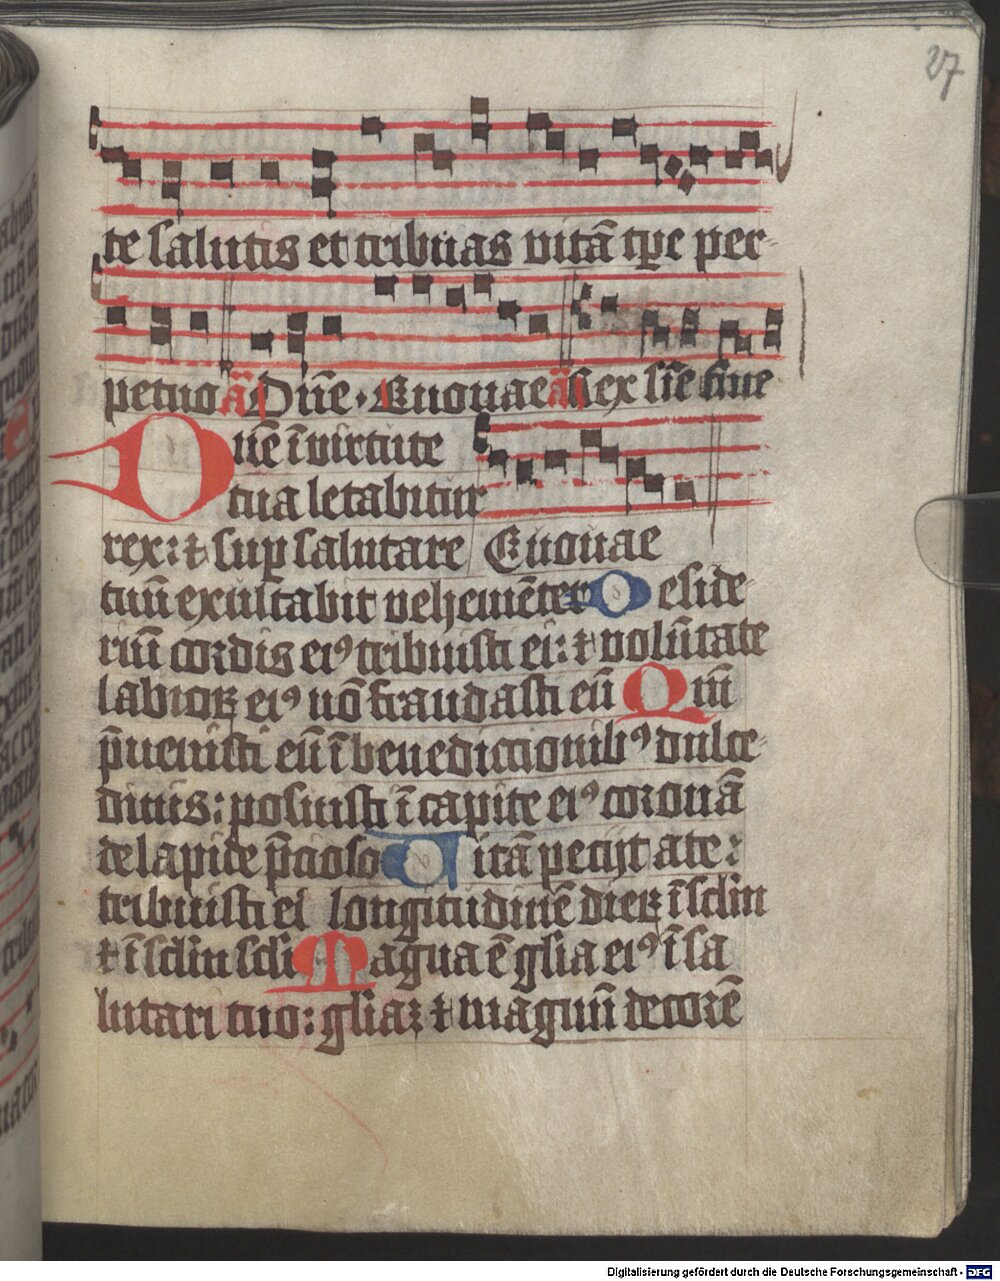 27
te salutis et tribuas vitā tp̄e per-
petuo ā Dn̄e · Euouae ā Rex sīe fine
Dn̄e ī virtute
tua letabitur
rex: ⁊ suꝑ salutare Euouae
tuū exultabit vehemēter Deside-
riū cordis eiꝰ tribuisti ei: ⁊ volūtate
labioꝝ eiꝰ nō fraudasti eū Qm̄
p̄uenisti eū ī benedictionibꝰ dulce-
dinis: posuisti ī capite eiꝰ coronā
de lapide p̄cioso Vitā pecijt a te:
tribuisti ei longitudinē dieꝝ ī sclm
⁊ ī sclm scli Magna ē glia eiꝰ ī sa
lutari tuo: gliaꝫ ⁊ magnū decorē
Digitalisierung gefördert durch die Deutsche Forschungsgemeinschaft - DFG